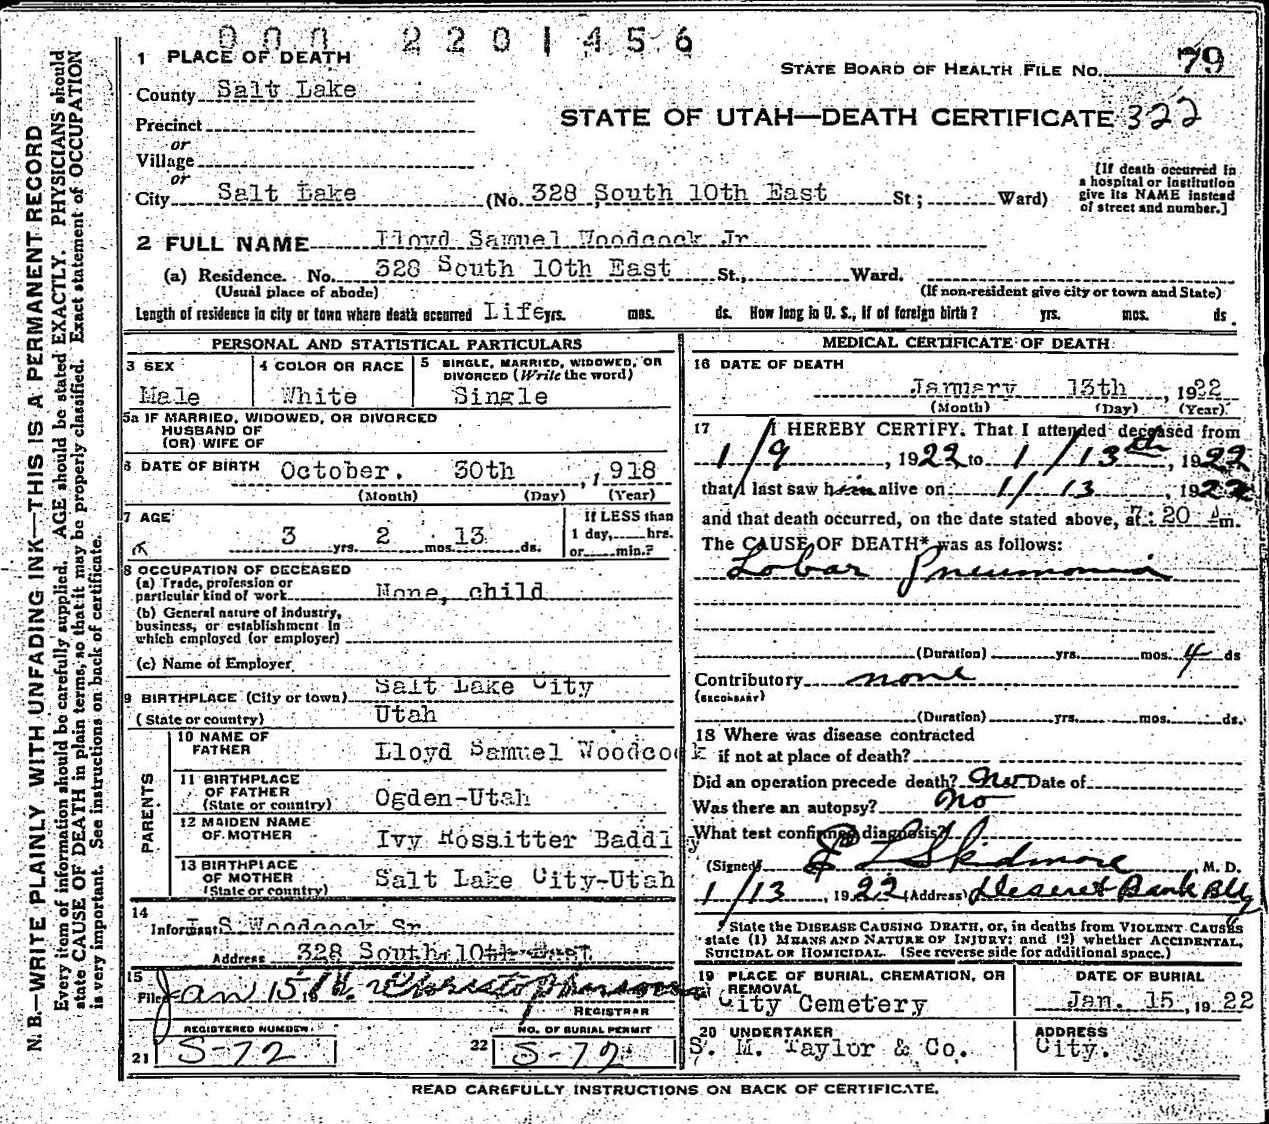 000 2201456
1 PLACE OF DEATH
STATE BOARD OF HEALTH FILE NO. 79
County Salt Lake
STATE OF UTAH—DEATH CERTIFICATE 322
Precinct
or
Village
or
City Salt Lake (No. 328 South 10th East St; Ward)
[If death occurred in a hospital or institution give its NAME instead of street and number.]
2 FULL NAME Lloyd Samuel Woodcock Jr
(a) Residence. No. 328 South 10th East St., Ward.
(Usual place of abode) (If non-resident give city or town and State)
Length of residence in city or town where death occurred Life yrs. mos. ds. How long in U. S., if of foreign birth? yrs. mos. ds.
PERSONAL AND STATISTICAL PARTICULARS
3 SEX Male
4 COLOR OR RACE White
5 SINGLE, MARRIED, WIDOWED, OR DIVORCED (Write the word) Single
5a IF MARRIED, WIDOWED, OR DIVORCED
HUSBAND OF
(OR) WIFE OF
6 DATE OF BIRTH October. 30th , 1918
(Month) (Day) (Year)
7 AGE 3 yrs. 2 mos. 13 ds.
If LESS than
1 day, hrs.
or min.?
8 OCCUPATION OF DECEASED
(a) Trade, profession or
particular kind of work None, child
(b) General nature of industry,
business, or establishment in
which employed (or employer)
(c) Name of Employer
9 BIRTHPLACE (City or town) Salt Lake City
(State or country) Utah
PARENTS
10 NAME OF FATHER Lloyd Samuel Woodcock
11 BIRTHPLACE OF FATHER (State or country) Ogden-Utah
12 MAIDEN NAME OF MOTHER Ivy Rossitter Baddly
13 BIRTHPLACE OF MOTHER (State or country) Salt Lake City-Utah
14
Informant L S Woodcock Sr.
Address 328 South 10th East
15
Filed Jan 15
REGISTRAR
REGISTERED NUMBER
21 S-72
NO. OF BURIAL PERMIT
22 S-72
MEDICAL CERTIFICATE OF DEATH
16 DATE OF DEATH
January 13th , 1922
(Month) (Day) (Year)
17 I HEREBY CERTIFY, That I attended deceased from
1/9 , 1922 to 1/13th , 1922
that I last saw him alive on 1/13 , 1922
and that death occurred, on the date stated above, at 7:20 A m.
The CAUSE OF DEATH* was as follows:
Lobar Pneumonia
(Duration) yrs. mos. 4 ds
Contributory none
(SECONDARY)
(Duration) yrs. mos. ds.
18 Where was disease contracted
if not at place of death?
Did an operation precede death? No Date of
Was there an autopsy? No
What test confirmed diagnosis?
(Signed) E L Skidmore M. D.
1/13 , 1922 (Address) Deseret Bank Bldg
* State the DISEASE CAUSING DEATH, or, in deaths from VIOLENT CAUSES
state (1) MEANS AND NATURE OF INJURY; and (2) whether ACCIDENTAL,
SUICIDAL OR HOMICIDAL. (See reverse side for additional space.)
19 PLACE OF BURIAL, CREMATION, OR REMOVAL
City Cemetery
DATE OF BURIAL
Jan. 15, 1922
20 UNDERTAKER
S. M. Taylor & Co.
ADDRESS
City.
READ CAREFULLY INSTRUCTIONS ON BACK OF CERTIFICATE.
N. B.—WRITE PLAINLY WITH UNFADING INK—THIS IS A PERMANENT RECORD
Every item of information should be carefully supplied. AGE should be stated EXACTLY. PHYSICIANS should
state CAUSE OF DEATH in plain terms, so that it may be properly classified. Exact statement of OCCUPATION
is very important. See instructions on back of certificate.